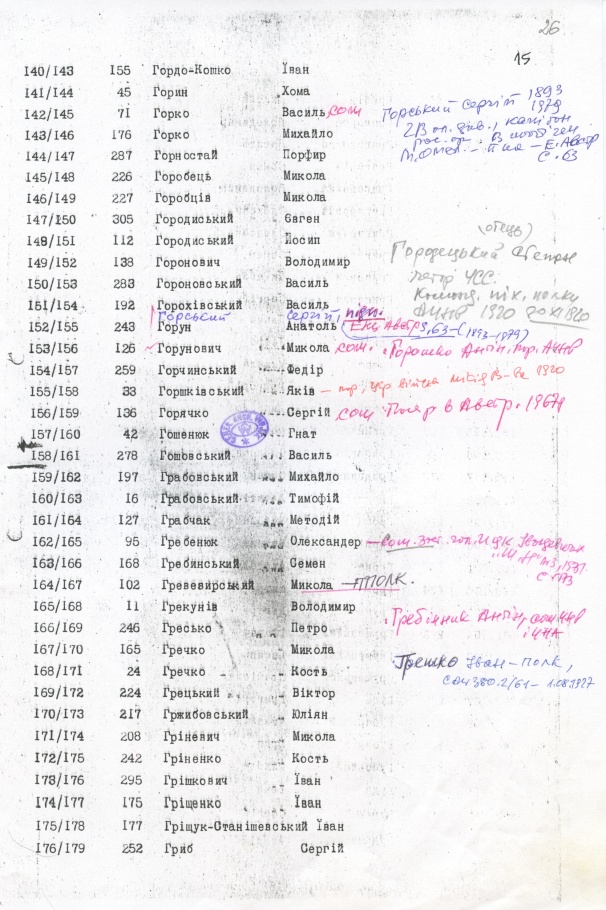 26
15
I40/I43 I55 Гордо-Кошко Іван
I4I/I44 45 Горин Хома
I42/I45 7I Горко Василь сот
I43/I46 I76 Горко Михайло
I44/I47 287 Горностай Порфир
I45/I48 226 Горобець Микола
I46/I49 227 Горобців Микола
I47/I50 305 Городиський Євген
I48/I5I II2 Городиський Йосип
I49/I52 I38 Горонович Володимир
I50/I53 283 Гороновський Василь
I5I/I54 I92 Горохівський Василь
Горський Сергій, підп.
I52/I55 243 Горун Анатоль
I53/I56 I26 Горунович Микола сот.
I54/I57 259 Горчинський Федір
I55/I58 33 Горшківський Яків
I56/I59 I36 Горячко Сергій сот
I57/I60 42 Гошенюк Гнат
I58/I6I 278 Гошовський Василь
I59/I62 I97 Грабовський Михайло
I60/I63 I6 Грабовський Тимофій
I6I/I64 I27 Грабчак Методій
I62/I65 95 Гребенюк Олександер
I63/I66 I68 Гребинський Семен
I64/I67 I02 Гревевирський Микола ППОЛК.
I65/I68 II Грекунів Володимир
I66/I69 246 Гресько Петро
I67/I70 I65 Гречко Микола
I68/I7I 24 Гречко Кость
I69/I72 224 Грецький Віктор
I70/I73 2I7 Гржибовський Юліян
I7I/I74 208 Гріневич Микола
I72/I75 242 Гріненко Кость
I73/I76 295 Грішкович Їван
I74/I77 I75 Гріщенко Їван
I75/I78 I77 Гріщук-Станішевський Їван
I76/I79 252 Гриб Сергій
Горський Сергій 1893
1979
(отець)
Городецький Степан
УСС.
1920
(1893-1979)
Горошко Антін, пор. АУНР
1920
в Австр. 1967
Гребінник Антін, сот УНР
і УНА
Грешко Іван - полк,